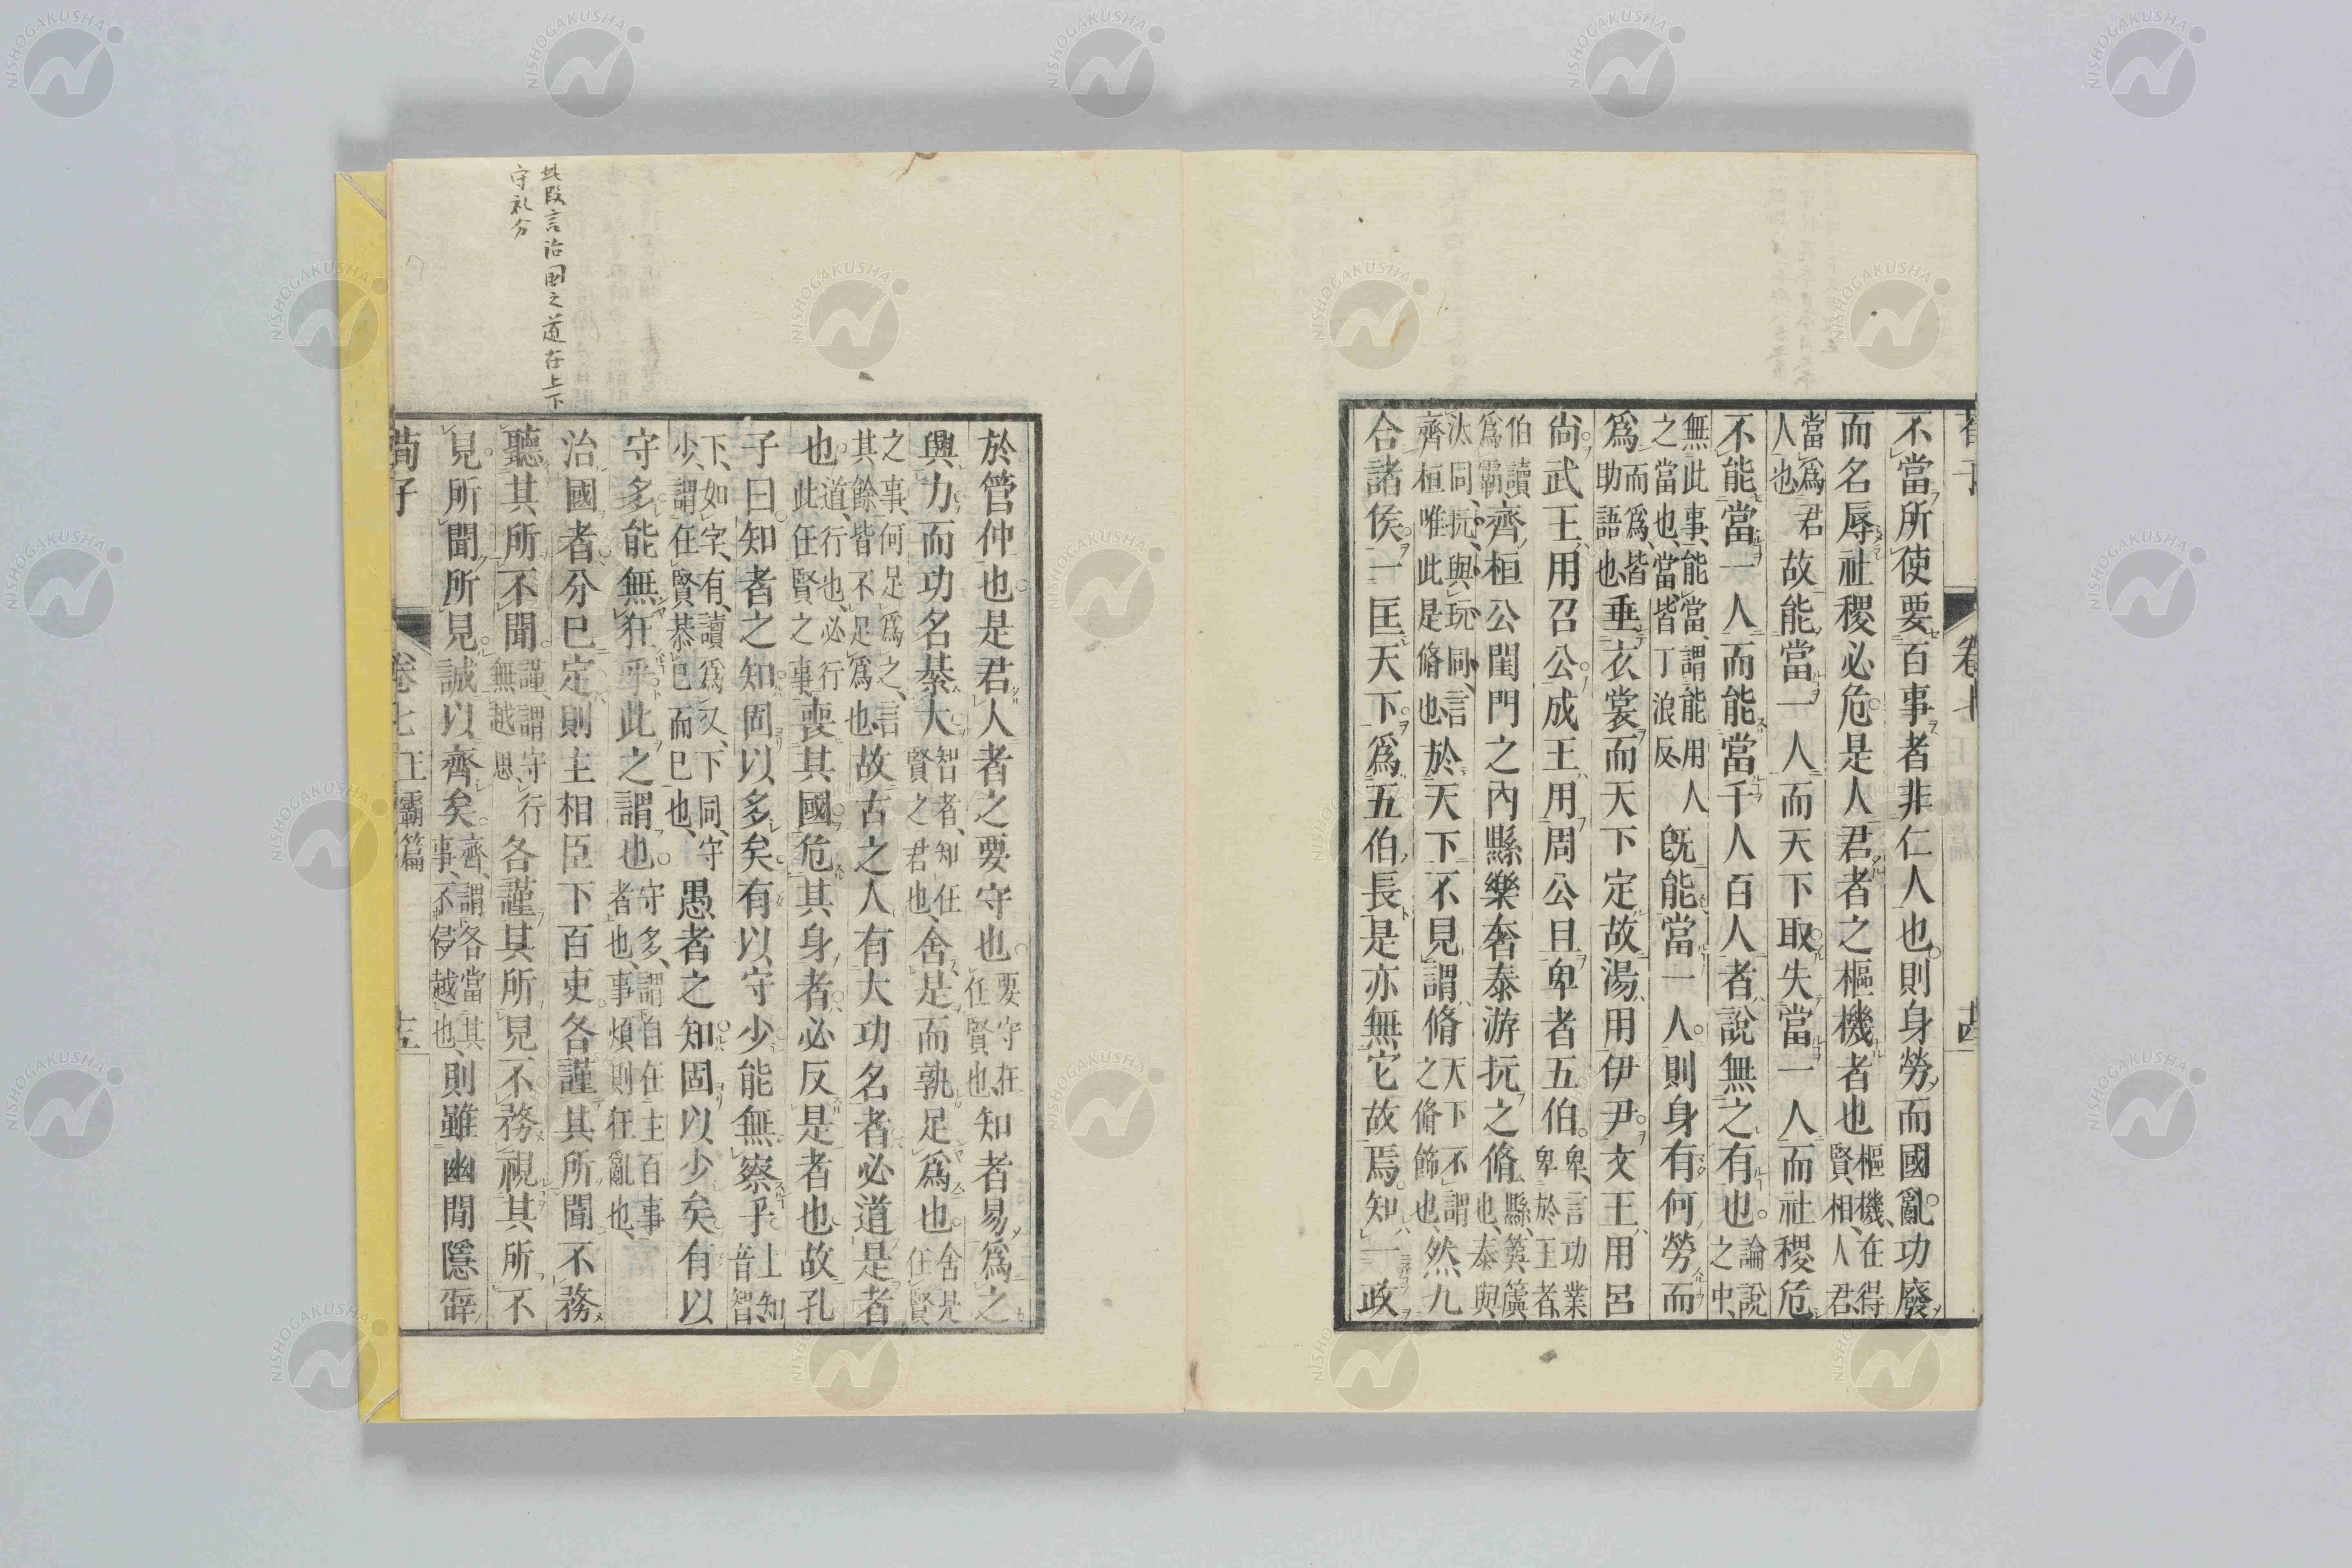 不當所使要百事者非仁人也則身勞而國亂功廢
而名辱社稷必危是人君者之樞機者也樞機、在得賢相、人君
當爲君人也故能當一人而天下取失當一人而社稷危
不能當一人而能當千人百人者說無之有也論說之中、
無此事、能當、謂能用人之當也、當、皆丁浪反既能當一人則身有何勞而
爲而爲、皆助語也垂衣裳而天下定故湯用伊尹文王用呂
尚武王用召公成王用周公旦卑者五伯卑、言功業卑於王者
伯讀爲霸齊桓公閨門之內縣樂奢泰游抏之脩縣、簨簴也、泰與
汰同、抏、與玩同、言齊桓唯此是脩也於天下不見謂脩天下不謂之脩飾也然九
合諸侯一匡天下爲五伯長是亦無它故焉知一政
於管仲也是君人者之要守也要守在任賢也知者易爲之
興力而功名綦大智者、知任賢之君也、舍是而孰足爲也舍是任賢
之事、何足爲之、言其餘皆不足爲也故古之人有大功名者必道是者
也道、行也、必行此任賢之事喪其國危其身者必反是者也故孔
子曰知者之知固以多矣有以守少能無察乎上知音智
下、如字、有、讀爲又、下同、守少、謂任賢恭已而已也、愚者之知固以少矣有以
守多能無狂乎此之謂也守多、謂自任主百事者也、事煩則狂亂也
治國者分已定則主相臣下百吏各謹其所聞不務
聽其所不聞謹、謂守行無越思、各謹其所見不務視其所不
見所聞所見誠以齊矣齊、謂各當其事、不侵越也、則雖幽閒隱辟
荀子 卷七 王霸篇 十五
此段言治国之道在上下
守礼分